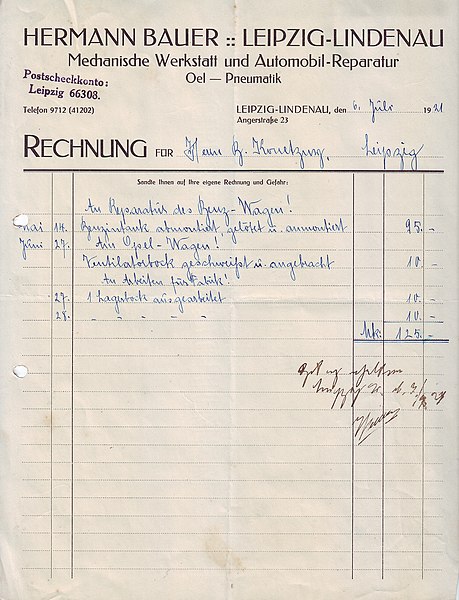 HERMANN BAUER :: LEIPZIG-LINDENAU
Mechanische Werkstatt und Automobil-Reparatur
Oel — Pneumatik
Postscheckkonto:
Leipzig 66308.
Telefon 9712 (41202)
LEIPZIG-LINDENAU, den 6. Juli 1921
Angerstraße 23
RECHNUNG FÜR Herrn Leipzig
Sandte Ihnen auf Ihre eigene Rechnung und Gefahr:
An Reparatur des Benz-Wagen!
Mai 14. Benzintank abmontiert, gelötet u. anmontiert 95.-
Juni 27. An Opel-Wagen!
Ventilatorbock geschweißt u. angebracht 10.-
An Arbeiten für Fabrik!
27. 1 Lagerbock ausgearbeitet 10.-
28. " " " " 10.-
Mk. 125.-